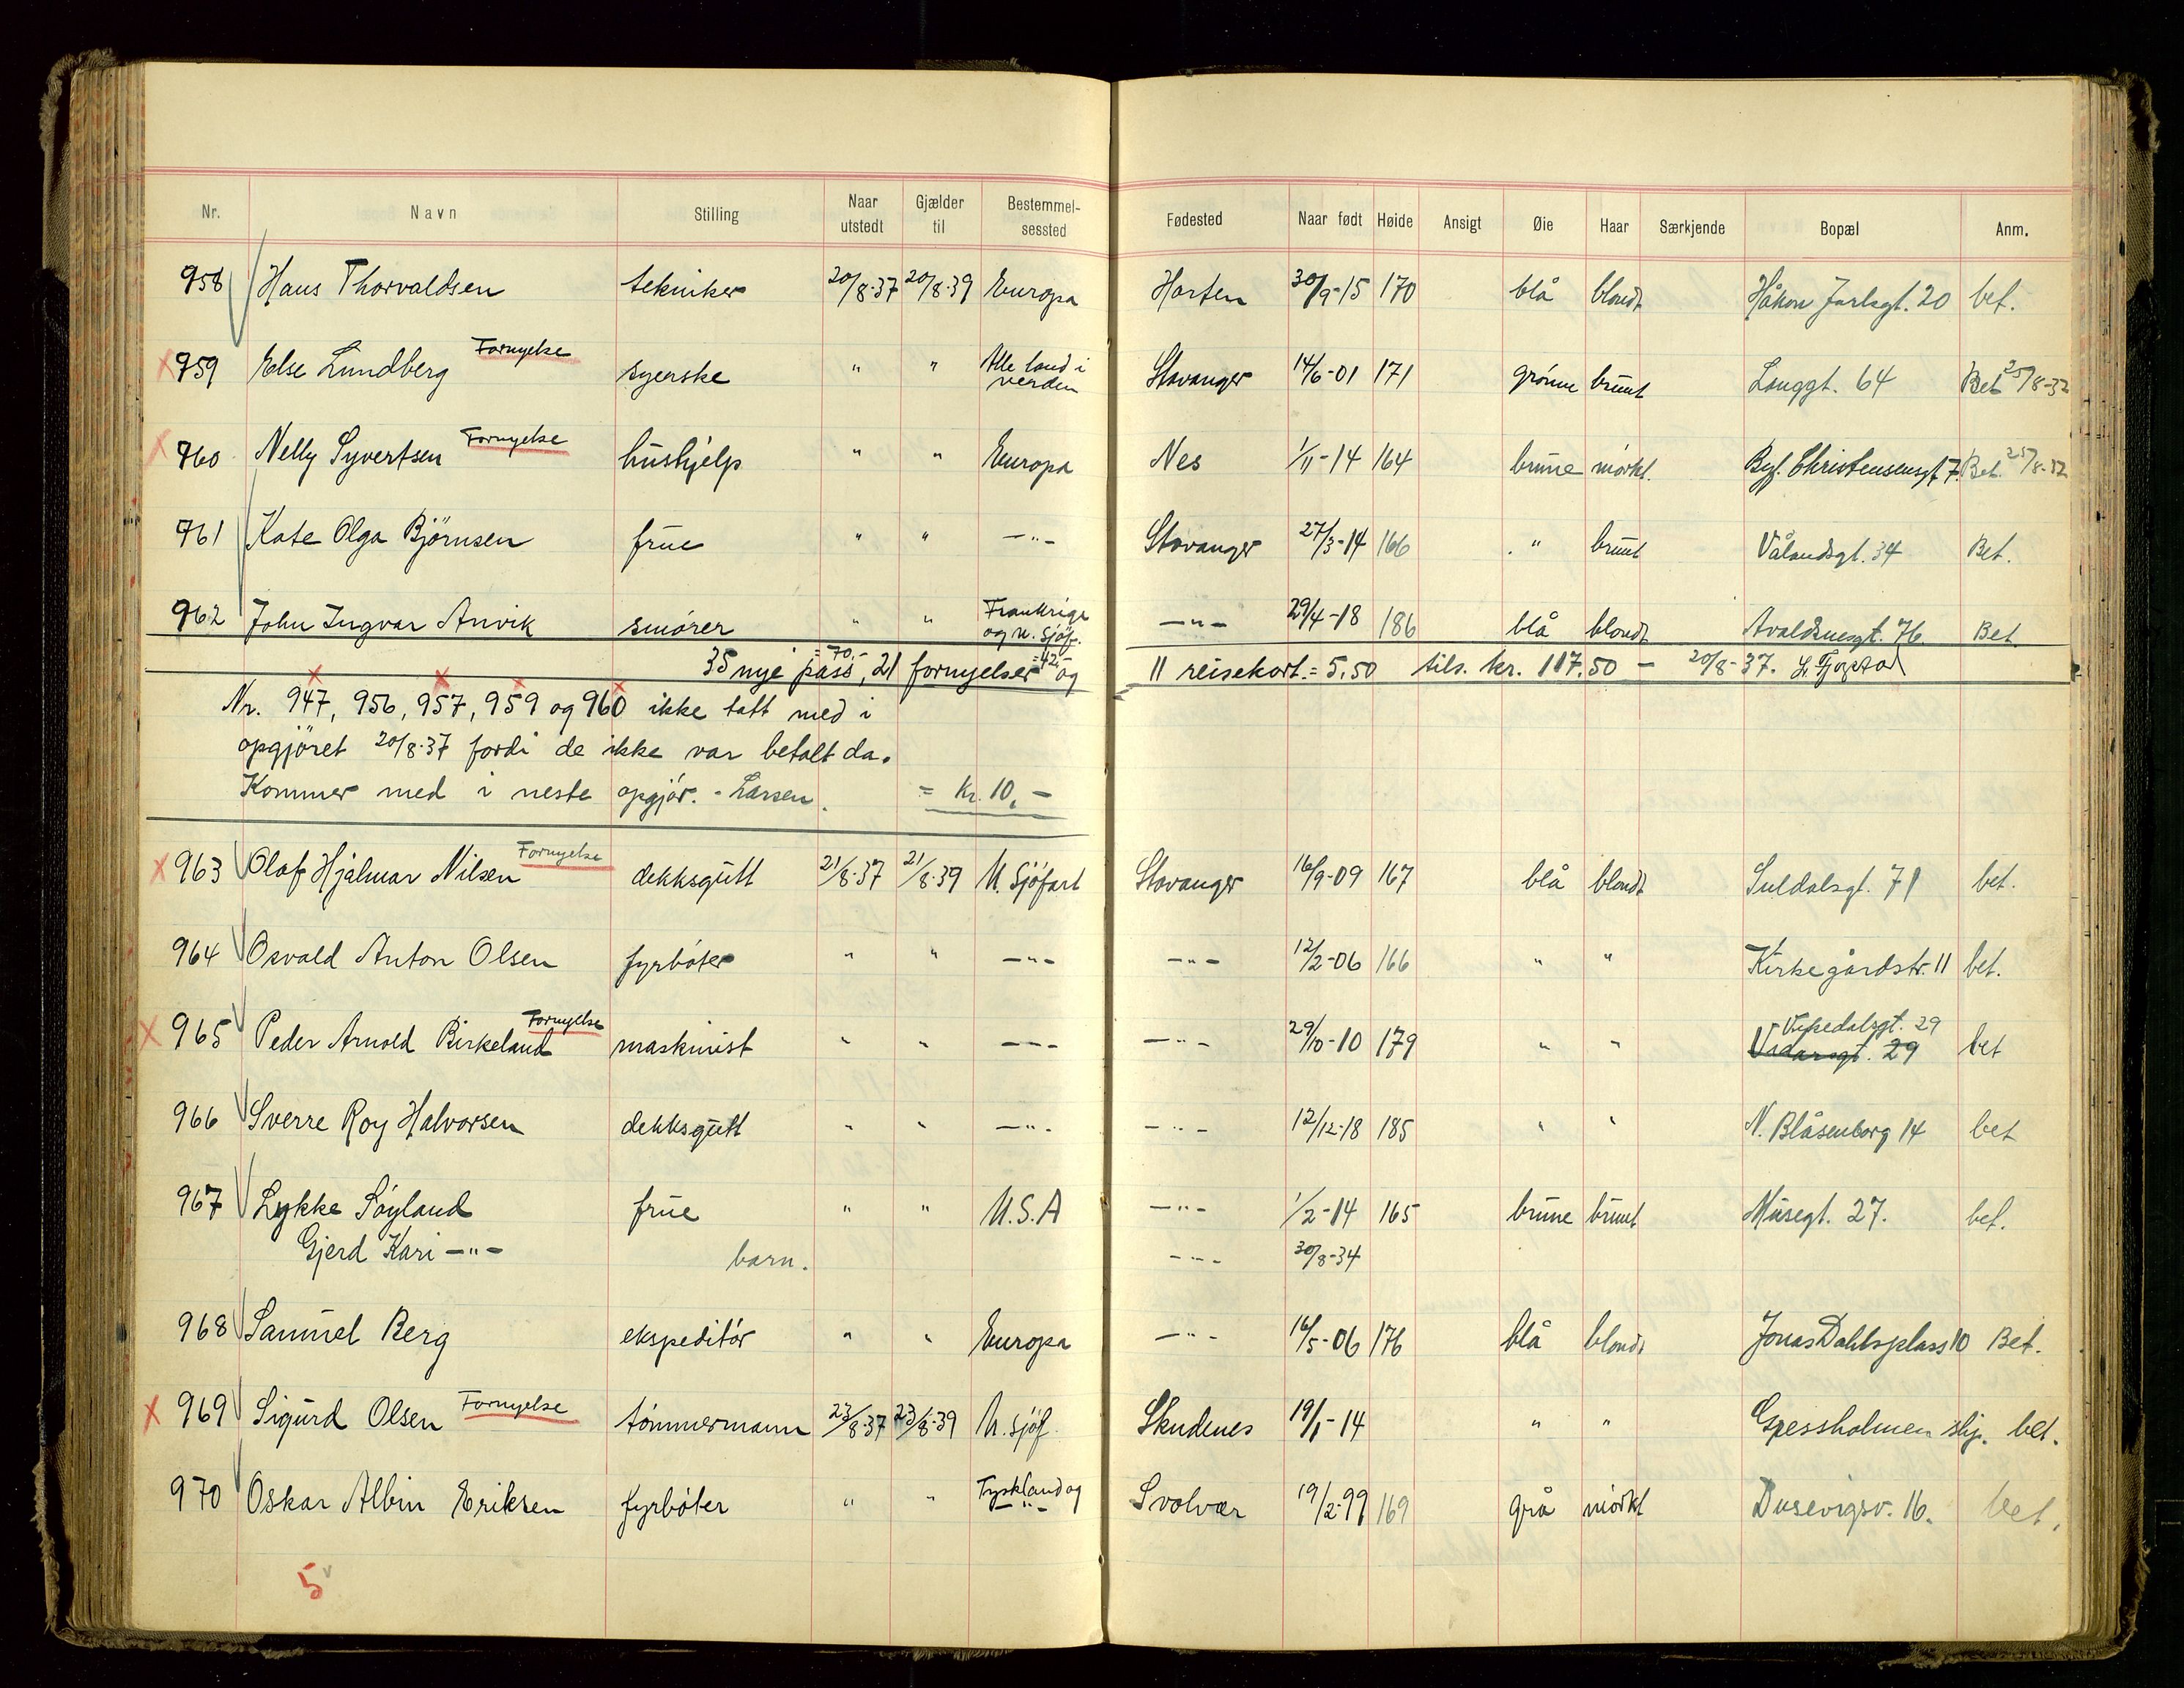 Nr. Navn Stilling Naar utstedt Gjælder til Bestemmelsessted Fødested Naar født Høide Ansigt Øie Haar Særkjende Bopæl Anm.
958 Hans Thorvaldsen tekniker 20/8-37 20/8-39 Europa Horten 30/9-15 170 blå blondt Håkon Jarlsgt. 20 bet.
959 Else Lundberg Fornyelse syerske " " Alle land i verden Stavanger 14/6-01 171 grönne brunt Langgt. 64 Bet 25/8-37
960 Nelly Syvertsen Fornyelse hushjelp " " Europa Nes 1/11-14 164 brune mörkt. Bgf. Christensensgt 7. Bet. 25/8-37
961 Kate Olga Björnsen frue " " —"— Stavanger 27/3-14 166 " brunt Vålandsgt. 34 Bet.
962 John Ingvar Anvik smörer " " Frankrige og u. Sjöf. —"— 29/4-18 186 blå blondt Avaldsnesgt. 76. Bet.
35 nye pass = 70,-, 21 fornyelser = 42,- og 11 reisekort. = 5,50 tils. kr. 117.50 — 20/8-37.
Nr. 947, 956, 957, 959 og 960 ikke tatt med i
opgjöret 20/8-37 fordi de ikke var betalt da.
Kommer med i neste opgjör. - Larsen. = Kr. 10,-
963 Olaf Hjalmar Nilsen Fornyelse dekksgutt 21/8-37 21/8-39 U. Sjöfart Stavanger 16/9-09 167 blå blondt Suldalsgt. 71 bet.
964 Osvald Anton Olsen fyrböter " " —"— —"— 12/2-06 166 " " Kirkegårdstr. 11 bet.
965 Peder Arnold Birkeland Fornyelse maskinist " " —"— —"— 29/10-10 179 " " Vidarsgt. 29 Vesedalsgt. 29 bet
966 Sverre Roy Halvorsen dekksgutt " " —"— —"— 12/12-18 185 " " N. Blåsenborg 14 bet
967 Lykke Söyland frue " " U.S.A —"— 1/2-14 165 brune brunt Musegt. 27. bet.
Gjerd Kari —"— barn. —"— 30/8-34
968 Samuel Berg ekspeditör " " Europa —"— 16/5-06 176 blå blondt Jonas Dahlsplass 10 Bet.
969 Sigurd Olsen Fornyelse tömmermann 23/8-37 23/8-39 U. Sjöf. Skudenes 19/1-14 " " Gjessholmen skj. bet.
970 Oskar Albin Eriksen fyrböter " " Tyskland og —"— Svolvær 19/2-99 169 grå mörkt Dusevigsv. 16. bet.
5